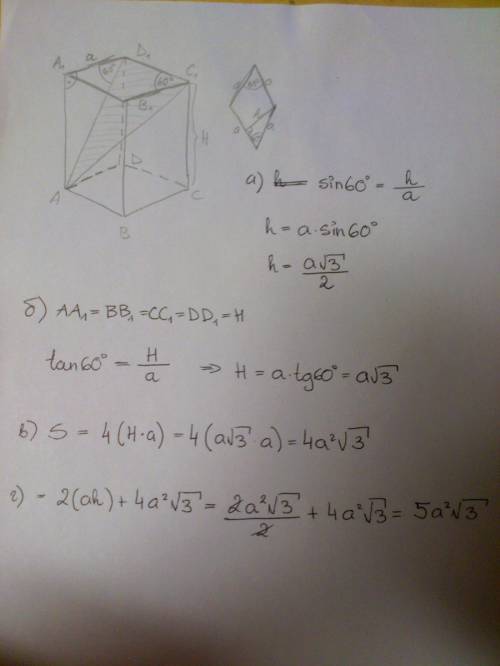 A₁ a D₁
60° 60° C₁
B₁
H
D
A C
B
a 60° a
a h a
60°
а) h sin60° = h/a
h = a·sin60°
h = a√3/2
б) AA₁ = BB₁ = CC₁ = DD₁ = H
tan60° = H/a ⇒ H = a·tg60° = a√3
в) S = 4(H·a) = 4(a√3·a) = 4a²√3
г) = 2(ah) + 4a²√3 = 2a²√3/2 + 4a²√3 = 5a²√3